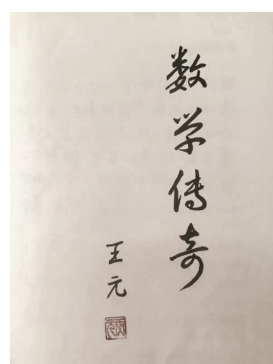 数学传奇
王元